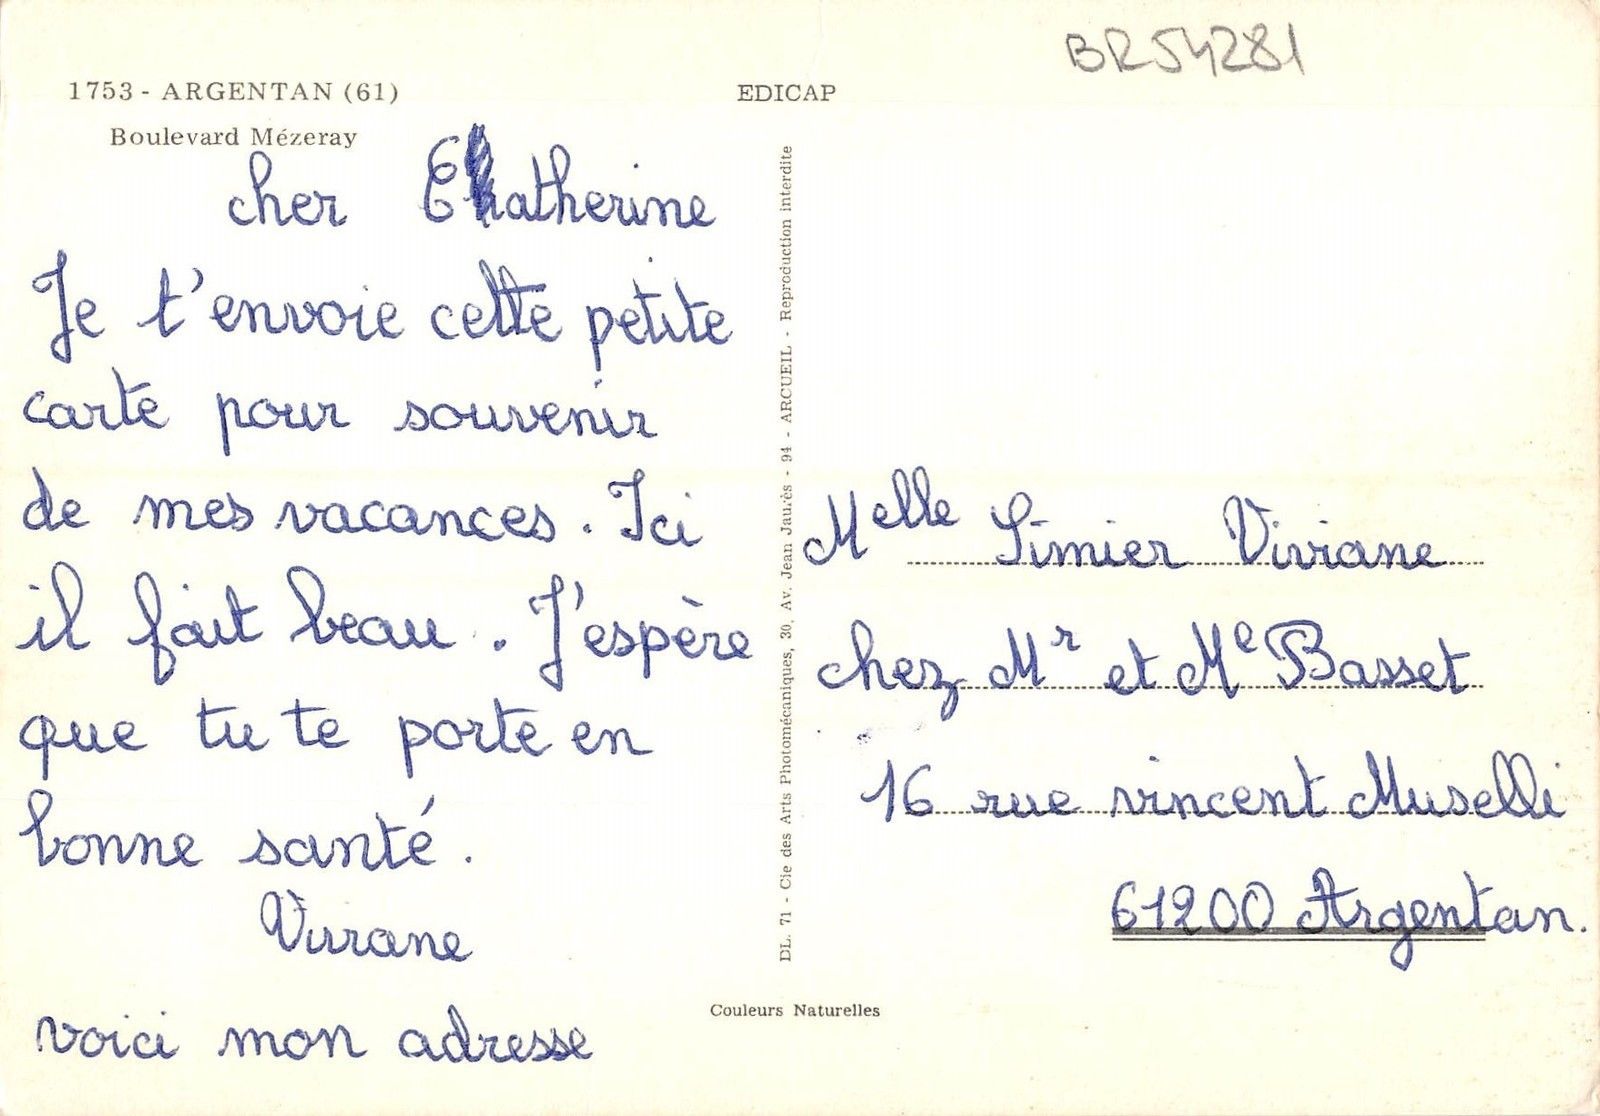 BR54281
1753 - ARGENTAN (61)
EDICAP
Boulevard Mézeray
cher Catherine
Je t'envoie cette petite
carte pour souvenir
de mes vacances. Ici
il fait beau. J'espère
que tu te porte en
bonne santé.
Viviane
voici mon adresse
DL. 71 - Cie des Arts Photomécaniques, 30, Av. Jean Jaurès - 94 - ARCUEIL - Reproduction interdite
Melle Simier Viviane
chez Mr et Me Basset
16 rue vincent Muselli
61200 Argentan.
Couleurs Naturelles